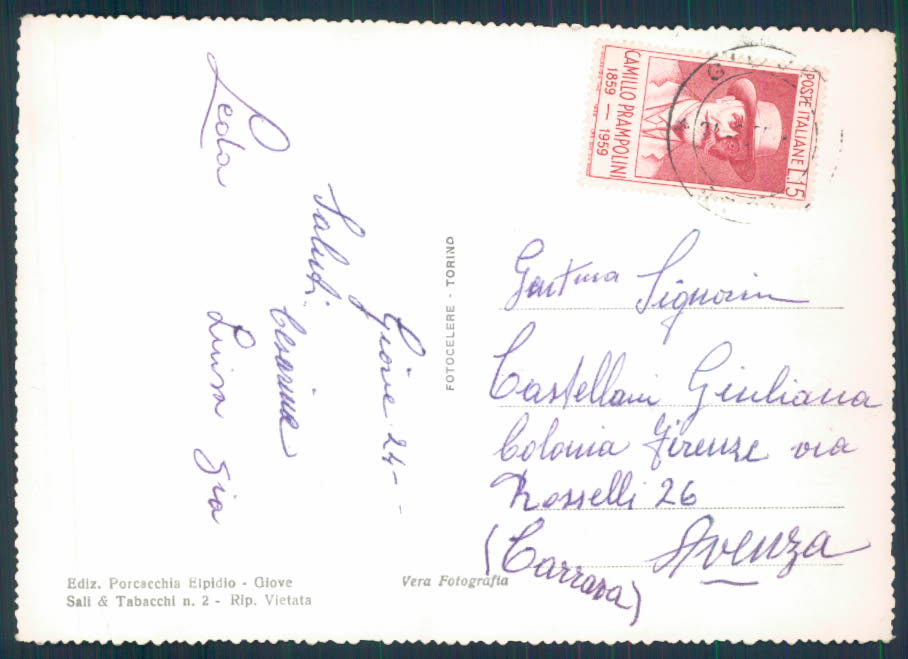 Giove 24--
Saluti
Cesarina
Luisa Gia
Leda
FOTOCELERE - TORINO
POSTE ITALIANE L.15
CAMILLO PRAMPOLINI
1859 — 1959
Signorina
Castellani Giuliana
Colonia Firenze via
Rosselli 26
Avenza
(Carrara)
Ediz. Porcacchia Elpidio - Giove
Sali & Tabacchi n. 2 - Rip. Vietata
Vera Fotografia